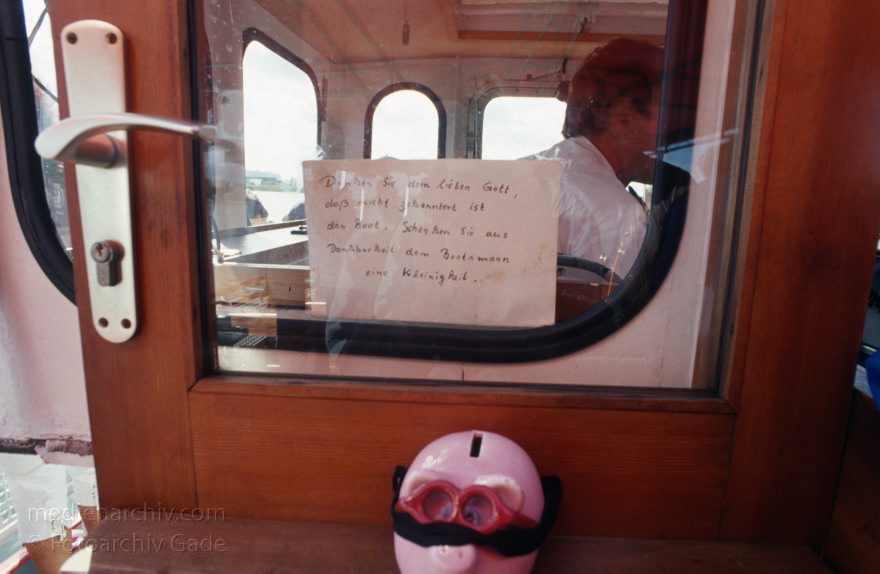 Danken Sie dem lieben Gott,
daß nicht gekentert ist
das Boot. Schenken Sie aus
Dankbarkeit dem Bootsmann
eine Kleinigkeit.
medienarchiv.com
© Fotoarchiv Gade